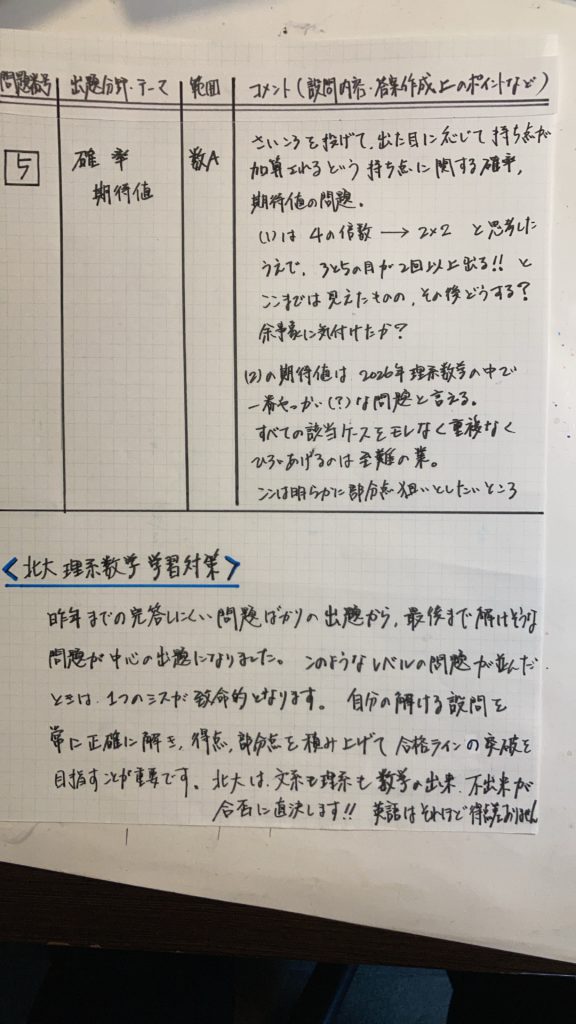 問題番号 出題分野・テーマ 範囲 コメント(設問内容・答案作成上のポイントなど)
5 確率 数A さいころを投げて、出た目に応じて持ち点が
期待値 加算されるという持ち点に関する確率,
期待値の問題.
(1)は 4の倍数 → 2×2 と思考した
うえで、3と5の目が2回以上出る!! と
ここまでは見えたものの, その後どうする?
余事象に気付けたか?
(2)の期待値は 2026年理系数学の中で
一番やっかい(?)な問題と言える。
すべての該当ケースをモレなく重複なく
ひろいあげるのは至難の業。
ここは明らかに部分点狙いとしたいところ
<北大 理系数学 学習対策>
昨年までの完答しにくい問題ばかりの出題から, 最後まで解けそうな
問題が中心の出題になりました。 このようなレベルの問題が並んだ
ときは、1つのミスが致命的となります。 自分の解ける設問を
常に正確に解き, 得点, 部分点を積み上げて 合格ラインの突破を
目指すことが重要です。 北大は、文系も理系も 数学の出来、不出来が
合否に直決します!! 英語はそれほど得点差ありません